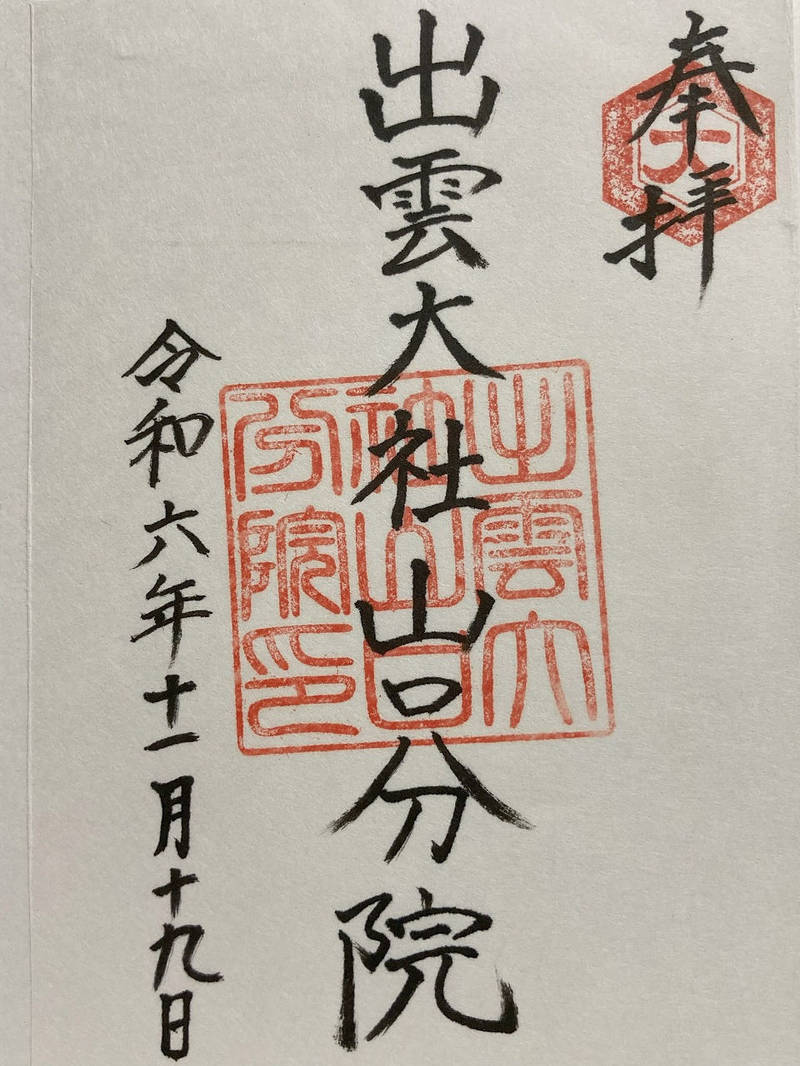 奉拝
大
出雲大社山口分院
出雲大
社山口
分院印
令和六年十一月十九日